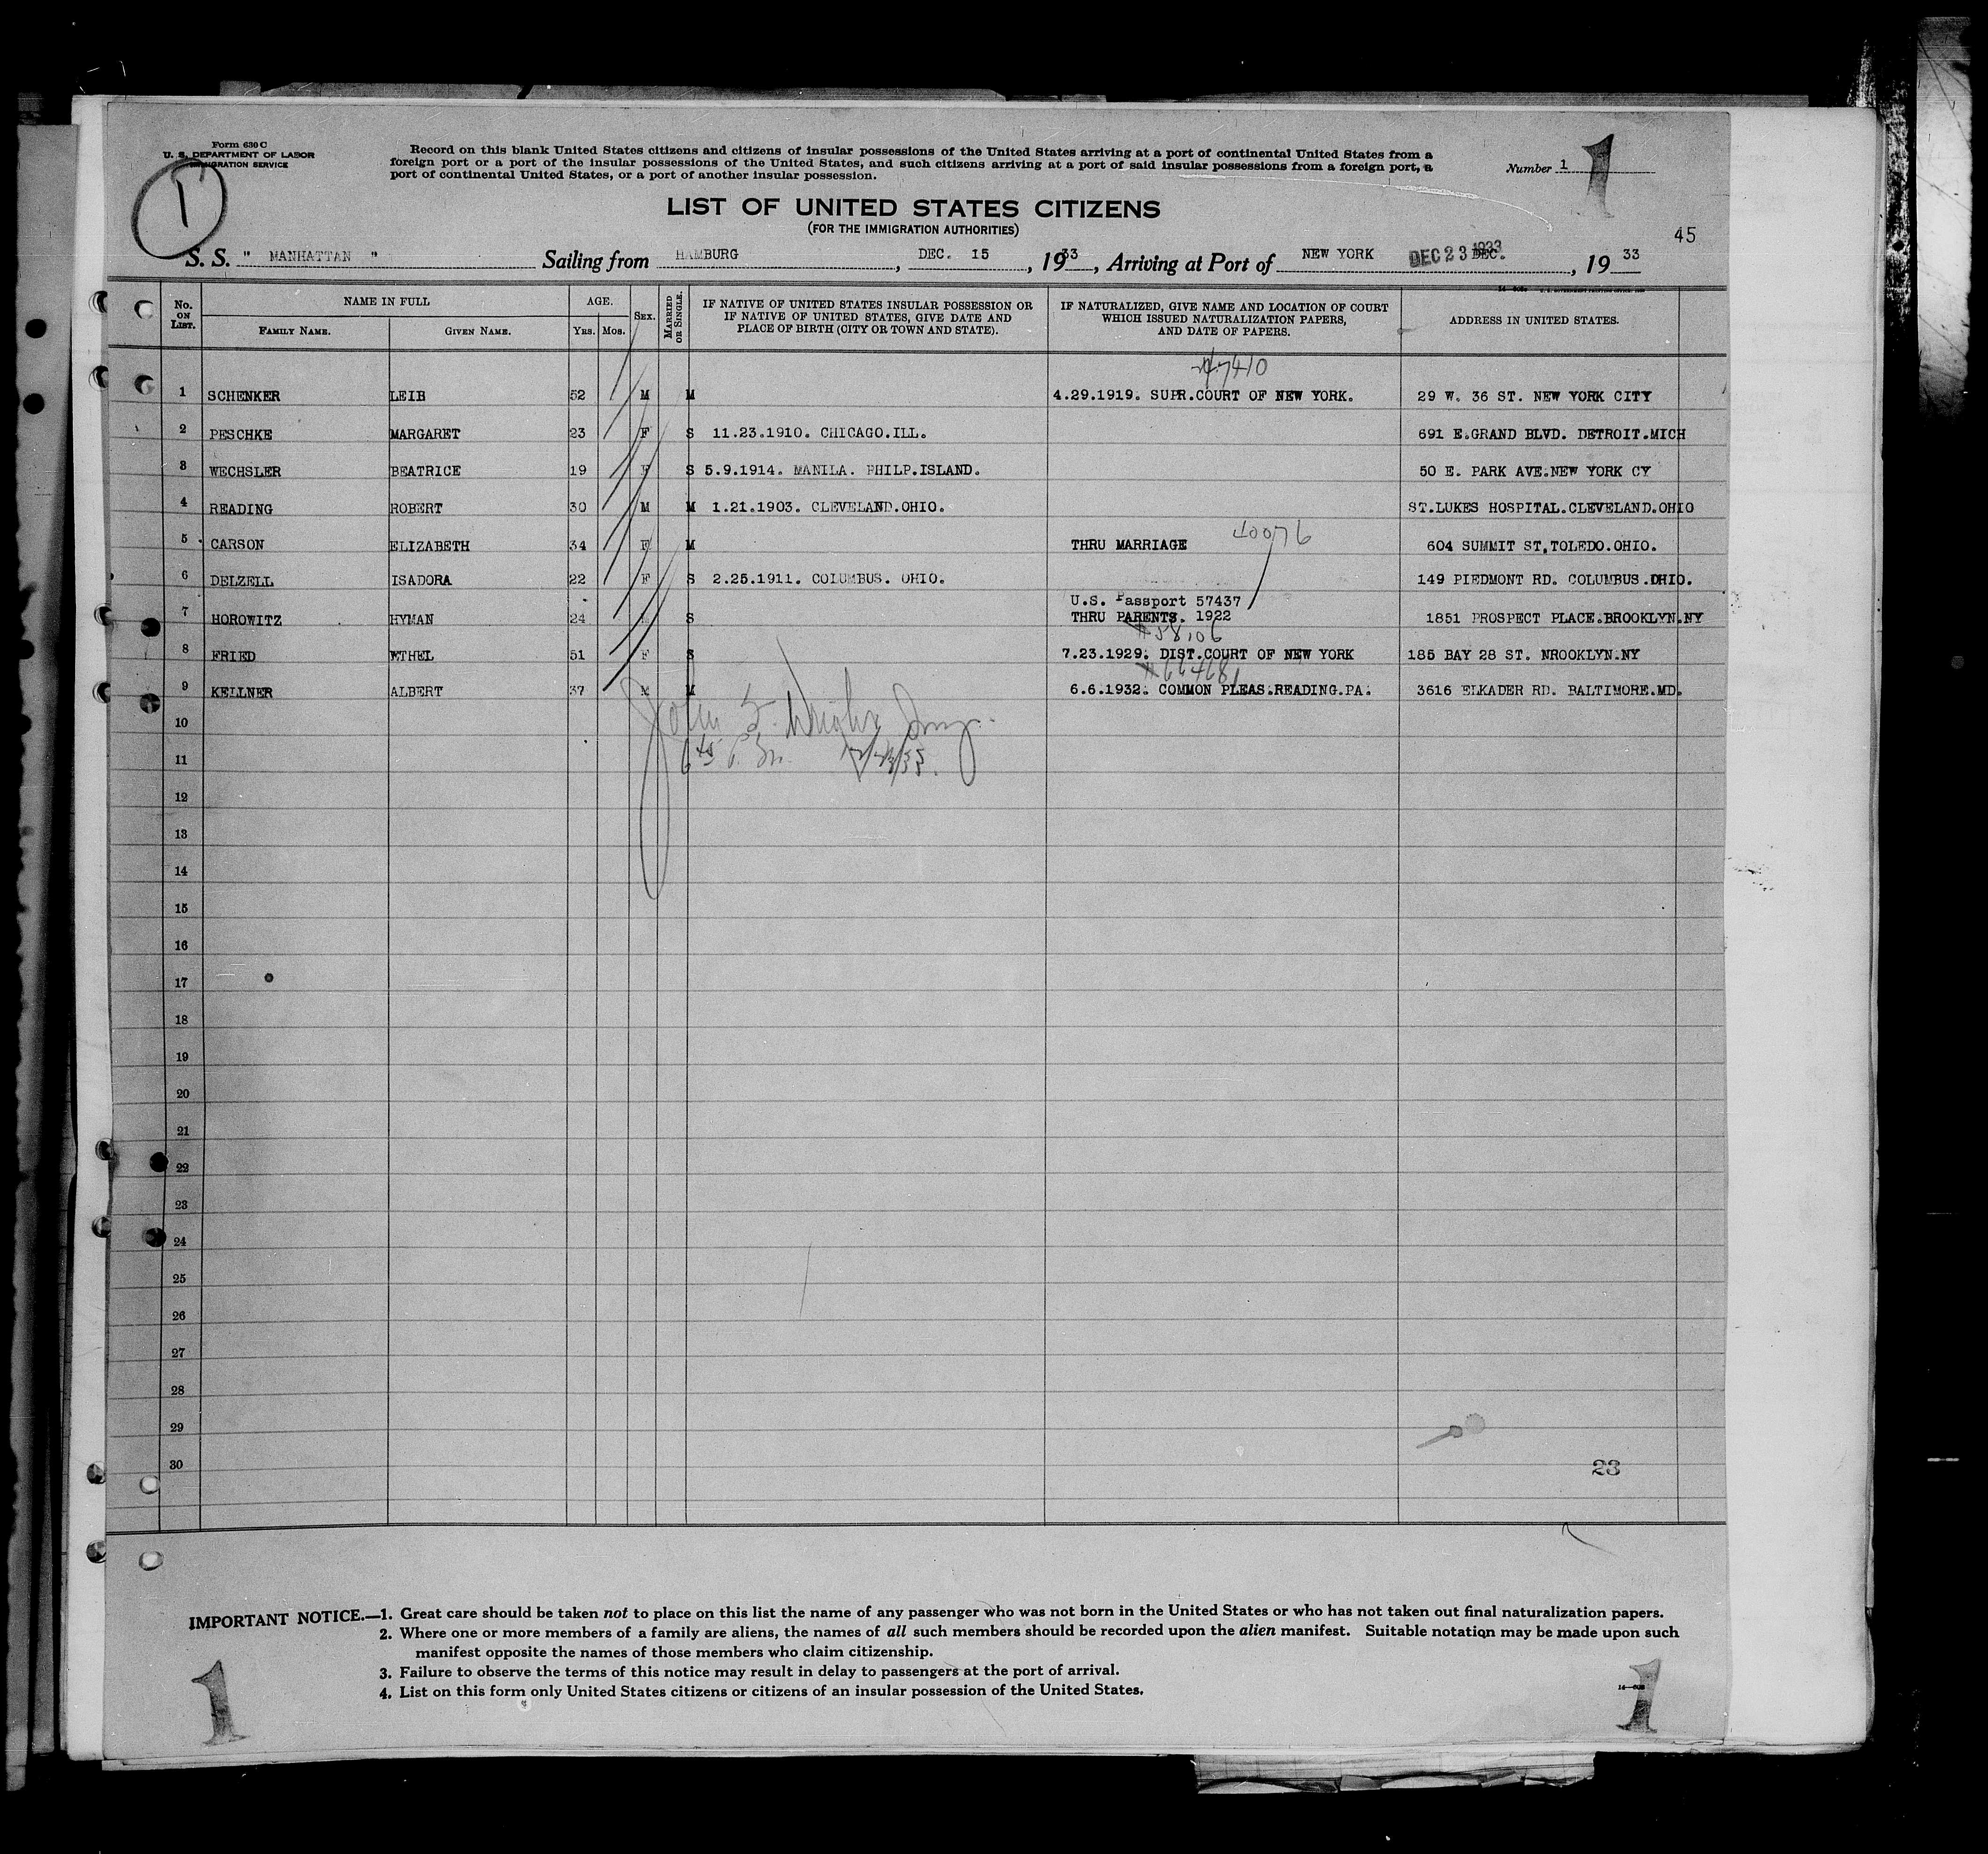 Form 630 C
U. S. DEPARTMENT OF LABOR
IMMIGRATION SERVICE
1
Record on this blank United States citizens and citizens of insular possessions of the United States arriving at a port of continental United States from a
foreign port or a port of the insular possessions of the United States, and such citizens arriving at a port of said insular possessions from a foreign port, a
port of continental United States, or a port of another insular possession.
Number 1
1
LIST OF UNITED STATES CITIZENS
(FOR THE IMMIGRATION AUTHORITIES)
45
S. S. " MANHATTAN " Sailing from HAMBURG, DEC. 15, 1933, Arriving at Port of NEW YORK DEC 23 1933 DEC., 19 33
No. ON LIST. NAME IN FULL AGE. SEX. MARRIED OR SINGLE. IF NATIVE OF UNITED STATES INSULAR POSSESSION OR IF NATIVE OF UNITED STATES, GIVE DATE AND PLACE OF BIRTH (CITY OR TOWN AND STATE). IF NATURALIZED, GIVE NAME AND LOCATION OF COURT WHICH ISSUED NATURALIZATION PAPERS, AND DATE OF PAPERS. ADDRESS IN UNITED STATES.
FAMILY NAME. GIVEN NAME. YRS. MOS.
1 SCHENKER LEIB 52 M M 4.29.1919. SUPR.COURT OF NEW YORK. 29 W. 36 ST. NEW YORK CITY
2 PESCHKE MARGARET 23 F S 11.23.1910. CHICAGO.ILL. 691 E.GRAND BLVD. DETROIT.MICH
3 WECHSLER BEATRICE 19 F S 5.9.1914. MANILA. PHILP.ISLAND. 50 E. PARK AVE.NEW YORK CY
4 READING ROBERT 30 M M 1.21.1903. CLEVELAND.OHIO. ST.LUKES HOSPITAL.CLEVELAND.OHIO
40076
5 CARSON ELIZABETH 34 F M THRU MARRIAGE 604 SUMMIT ST.TOLEDO.OHIO.
6 DELZELL ISADORA 22 F S 2.25.1911. COLUMBUS. OHIO. 149 PIEDMONT RD. COLUMBUS.OHIO.
U.S. Passport 57437
7 HOROWITZ HYMAN 24 S THRU PARENTS. 1922 1851 PROSPECT PLACE.BROOKLYN.NY
8 FRIED ETHEL 51 F S 7.23.1929. DIST.COURT OF NEW YORK 185 BAY 28 ST. NROOKLYN.NY
9 KELLNER ALBERT 37 M M 6.6.1932. COMMON PLEAS.READING.PA. 3616 ELKADER RD. BALTIMORE.MD.
10
11
12
13
14
15
16
17
18
19
20
21
22
23
24
25
26
27
28
29
30
23
IMPORTANT NOTICE.—1. Great care should be taken not to place on this list the name of any passenger who was not born in the United States or who has not taken out final naturalization papers.
2. Where one or more members of a family are aliens, the names of all such members should be recorded upon the alien manifest. Suitable notation may be made upon such
manifest opposite the names of those members who claim citizenship.
3. Failure to observe the terms of this notice may result in delay to passengers at the port of arrival.
4. List on this form only United States citizens or citizens of an insular possession of the United States.
1
1